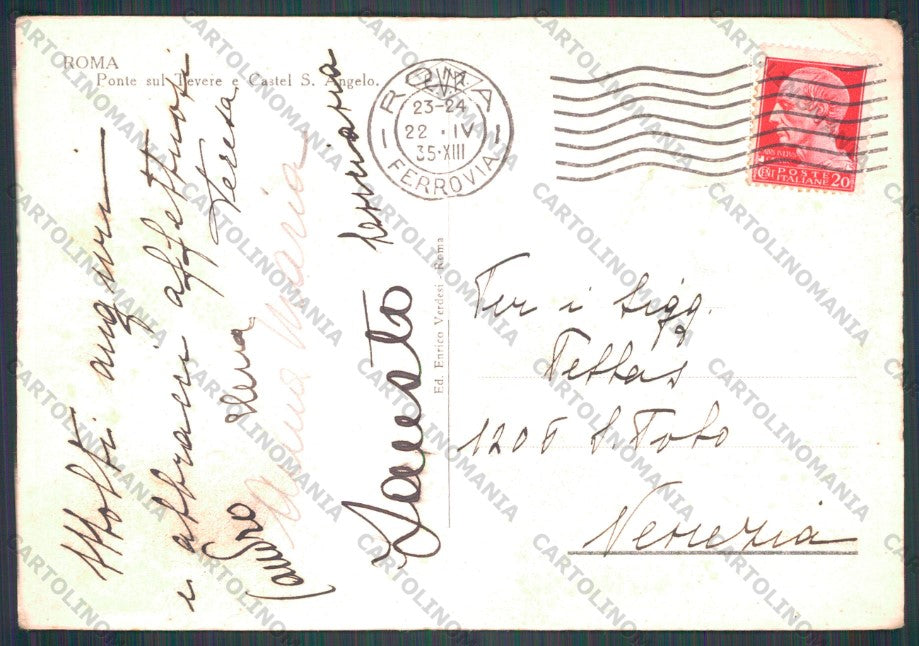 ROMA
Ponte sul Tevere e Castel S. Angelo.
Molti auguri
e abbracci affettuosi
Teresa
Vera
Anna Maria
ROMA
23-24
22 · IV
35·XIII
FERROVIA
POSTE
CENT ITALIANE 20
Ed. Enrico Verdesi - Roma
Per i Sigg.
Venezia
CARTOLINOMANIA